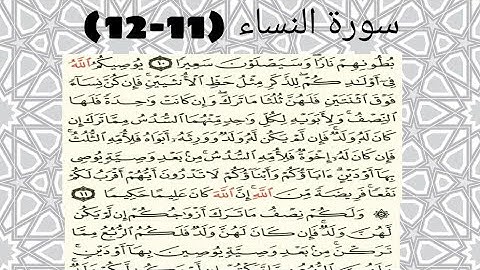 سورة النساء (11-12)
بُطُونِهِمْ نَارًا ۖ وَسَيَصْلَوْنَ سَعِيرًا ١٠ يُوصِيكُمُ اللَّهُ
فِي أَوْلَادِكُمْ ۖ لِلذَّكَرِ مِثْلُ حَظِّ الْأُنثَيَيْنِ ۚ فَإِن كُنَّ نِسَاءً
فَوْقَ اثْنَتَيْنِ فَلَهُنَّ ثُلُثَا مَا تَرَكَ ۖ وَإِن كَانَتْ وَاحِدَةً فَلَهَا
النِّصْفُ ۚ وَلِأَبَوَيْهِ لِكُلِّ وَاحِدٍ مِّنْهُمَا السُّدُسُ مِمَّا تَرَكَ إِن
كَانَ لَهُ وَلَدٌ ۚ فَإِن لَّمْ يَكُن لَّهُ وَلَدٌ وَوَرِثَهُ أَبَوَاهُ فَلِأُمِّهِ الثُّلُثُ ۚ
فَإِن كَانَ لَهُ إِخْوَةٌ فَلِأُمِّهِ السُّدُسُ ۚ مِن بَعْدِ وَصِيَّةٍ يُوصِي
بِهَا أَوْ دَيْنٍ ۗ آبَاؤُكُمْ وَأَبْنَاؤُكُمْ لَا تَدْرُونَ أَيُّهُمْ أَقْرَبُ لَكُمْ
نَفْعًا ۚ فَرِيضَةً مِّنَ اللَّهِ ۗ إِنَّ اللَّهَ كَانَ عَلِيمًا حَكِيمًا ١١
۞ وَلَكُمْ نِصْفُ مَا تَرَكَ أَزْوَاجُكُمْ إِن لَّمْ يَكُن
لَّهُنَّ وَلَدٌ ۚ فَإِن كَانَ لَهُنَّ وَلَدٌ فَلَكُمُ الرُّبُعُ مِمَّا
تَرَكْنَ ۚ مِن بَعْدِ وَصِيَّةٍ يُوصِينَ بِهَا أَوْ دَيْنٍ ۚ